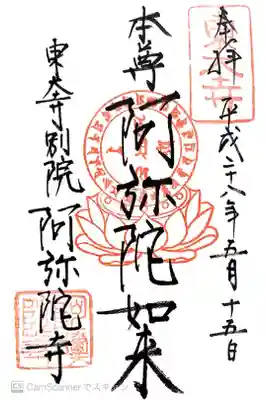 奉拝 平成二十八年五月十五日
本尊
阿弥陀如来
東大寺別院 阿弥陀寺
CamScannerでスキャン